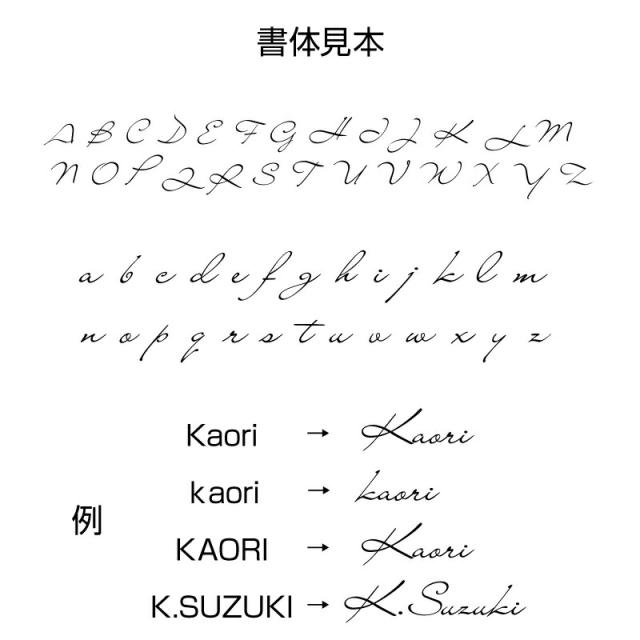 書体見本
A B C D E F G H I J K L M
N O P Q R S T U V W X Y Z
a b c d e f g h i j k l m
n o p q r s t u v w x y z
Kaori → Kaori
kaori → kaori
例
KAORI → Kaori
K.SUZUKI → K.Suzuki